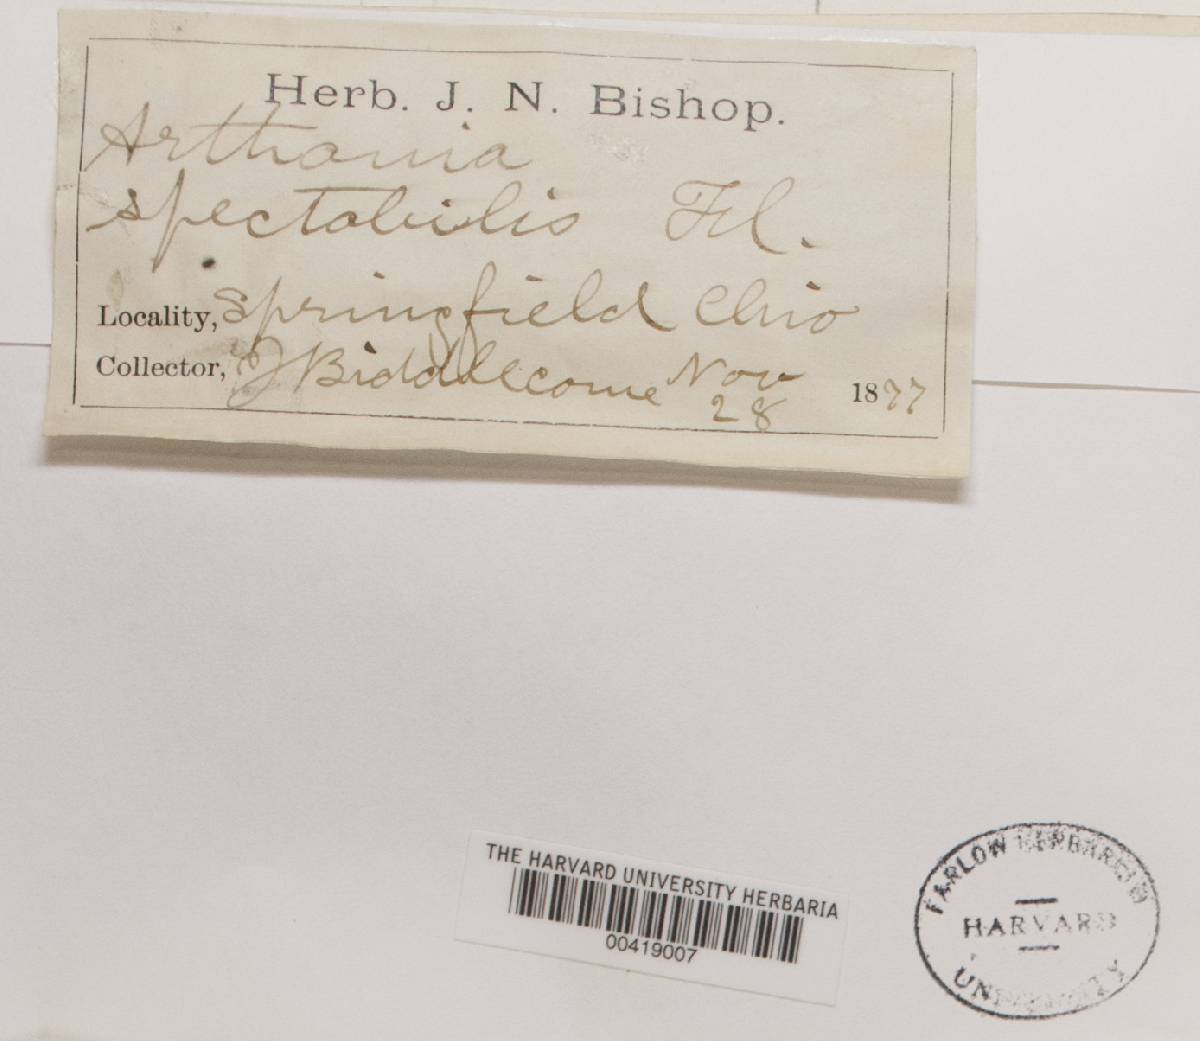 Herb. J. N. Bishop.
Arthonia
spectabilis Fl.
Locality, Springfield Ohio
Collector, HJ Biddlecome Nov 28 1877
THE HARVARD UNIVERSITY HERBARIA
00419007
FARLOW HERBARIUM
HARVARD
UNIVERSITY